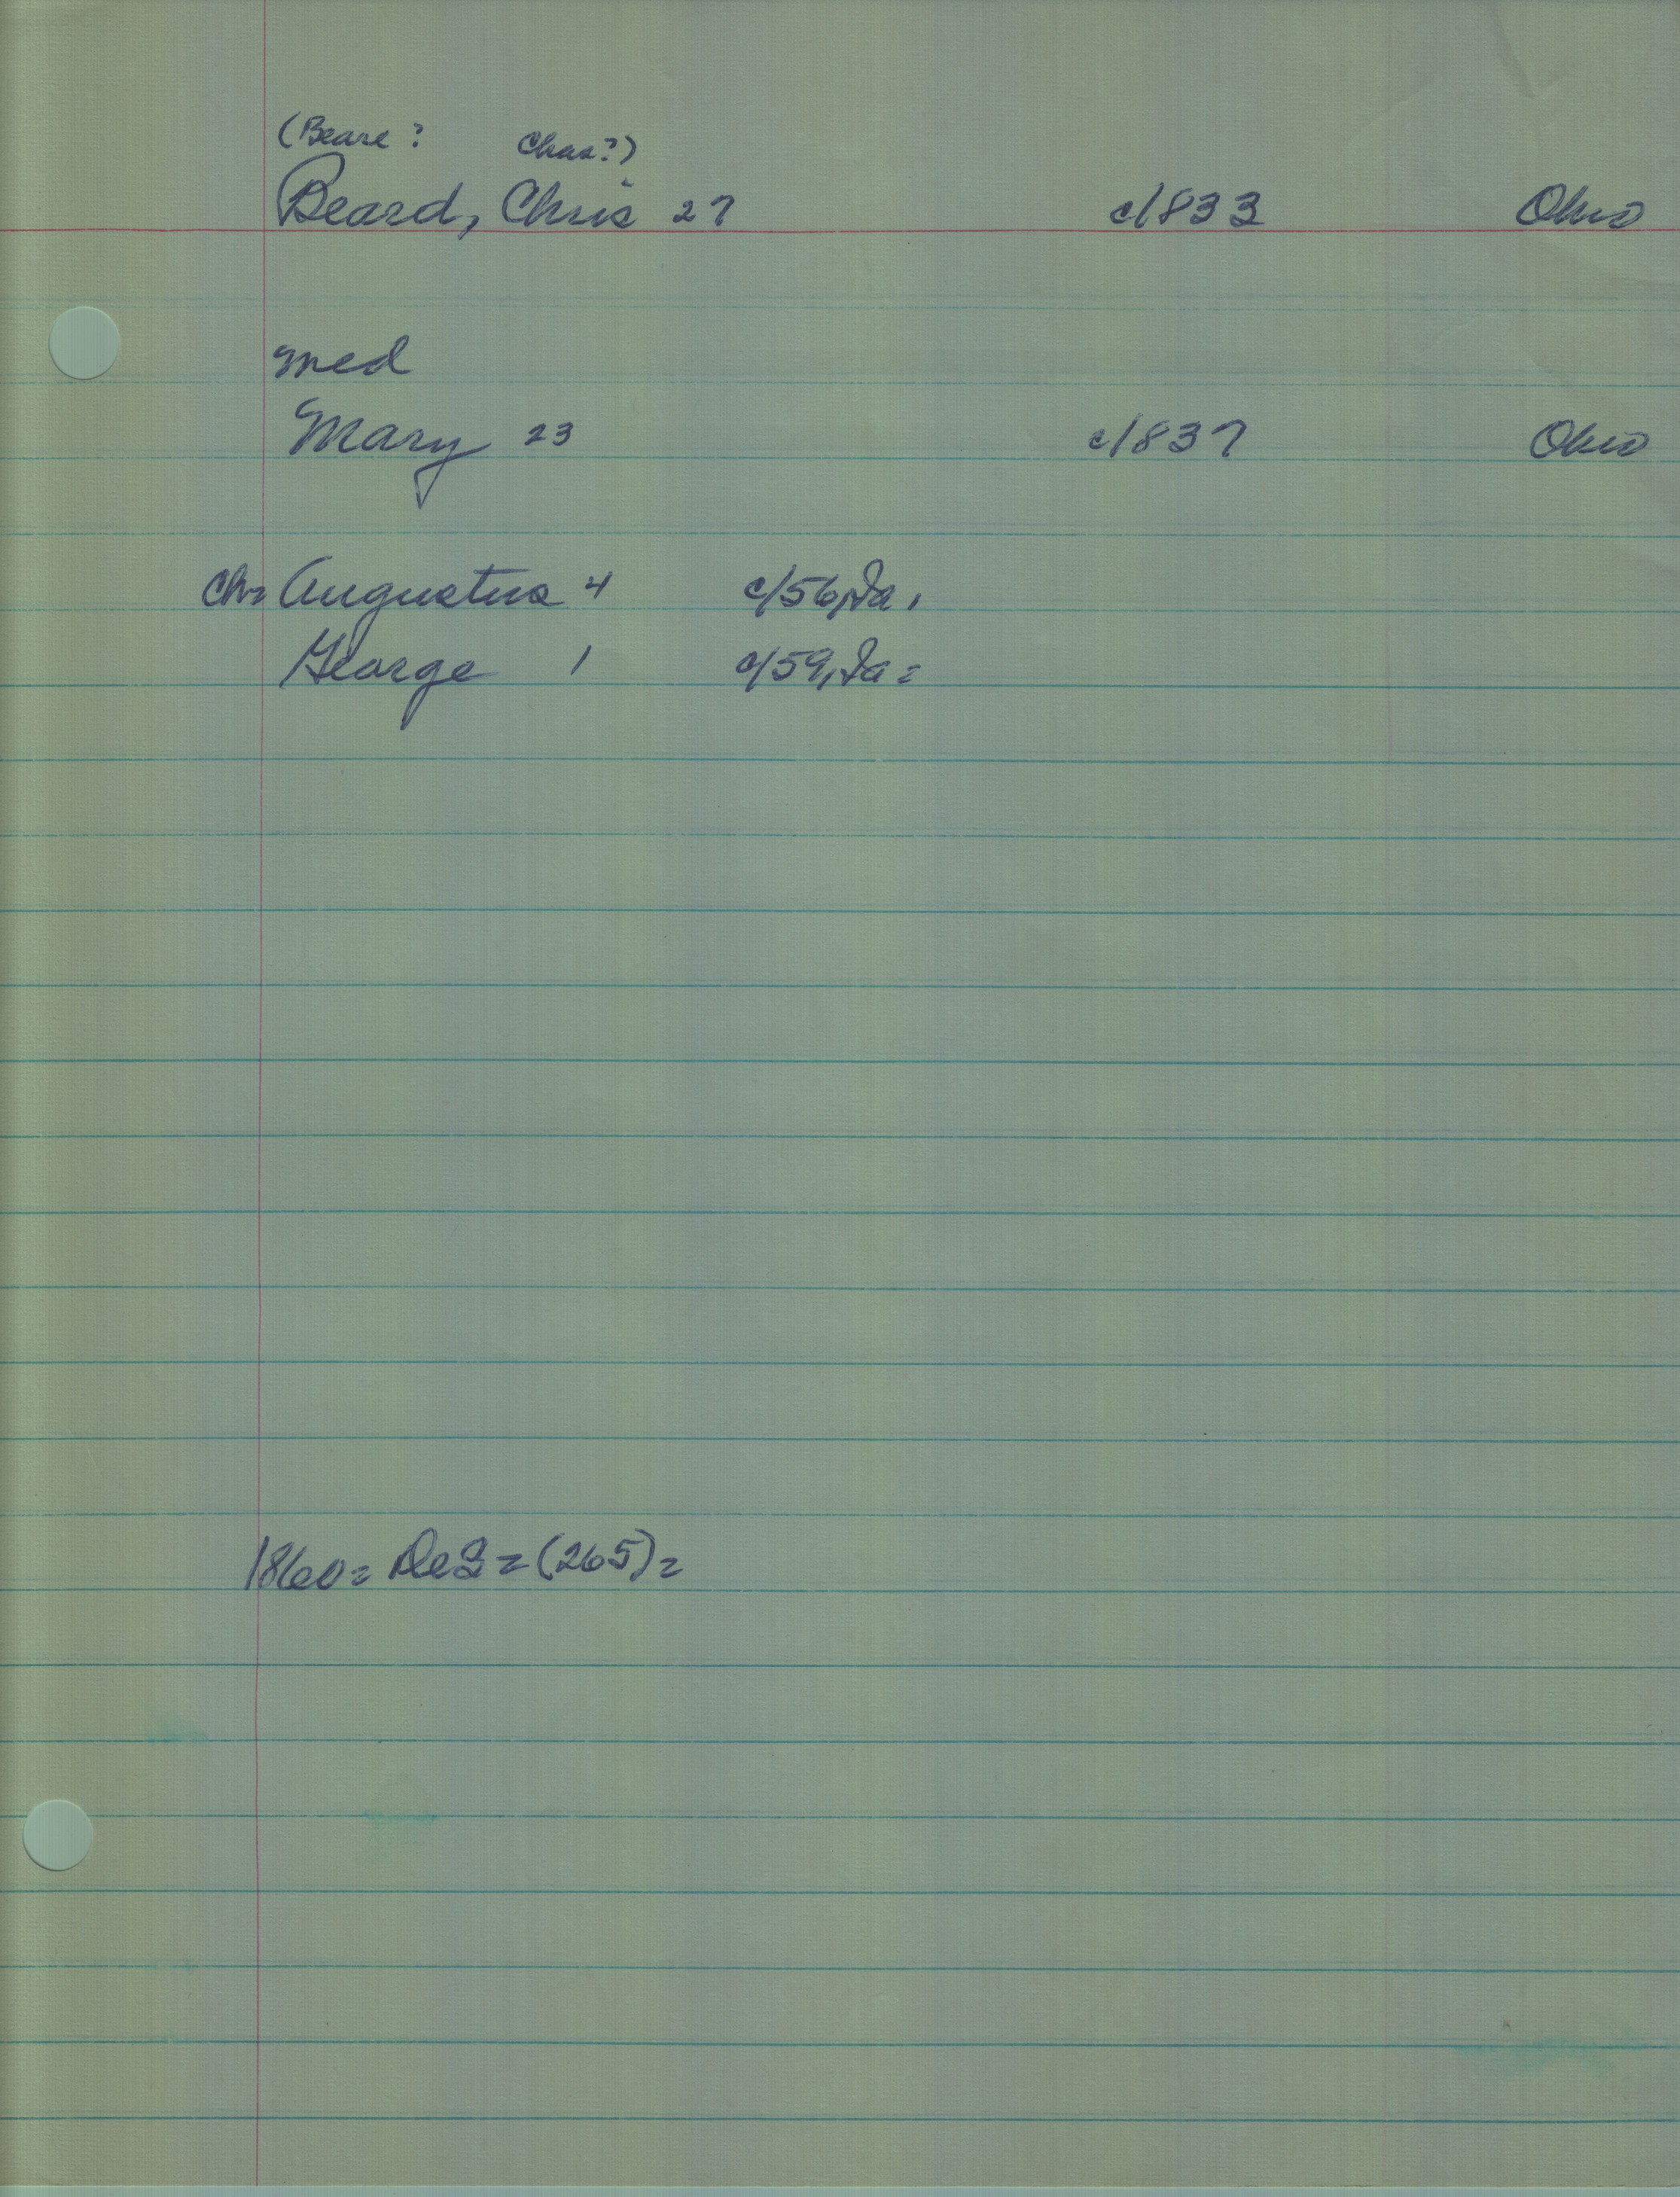 (Beare? Chas?)
Beard, Chris 27 c1833 Ohio
med
Mary 23 c1837 Ohio
Ch= Augustus 4 c/56, Ia.
George 1 c/59, Ia=
1860= DeS= (265)=